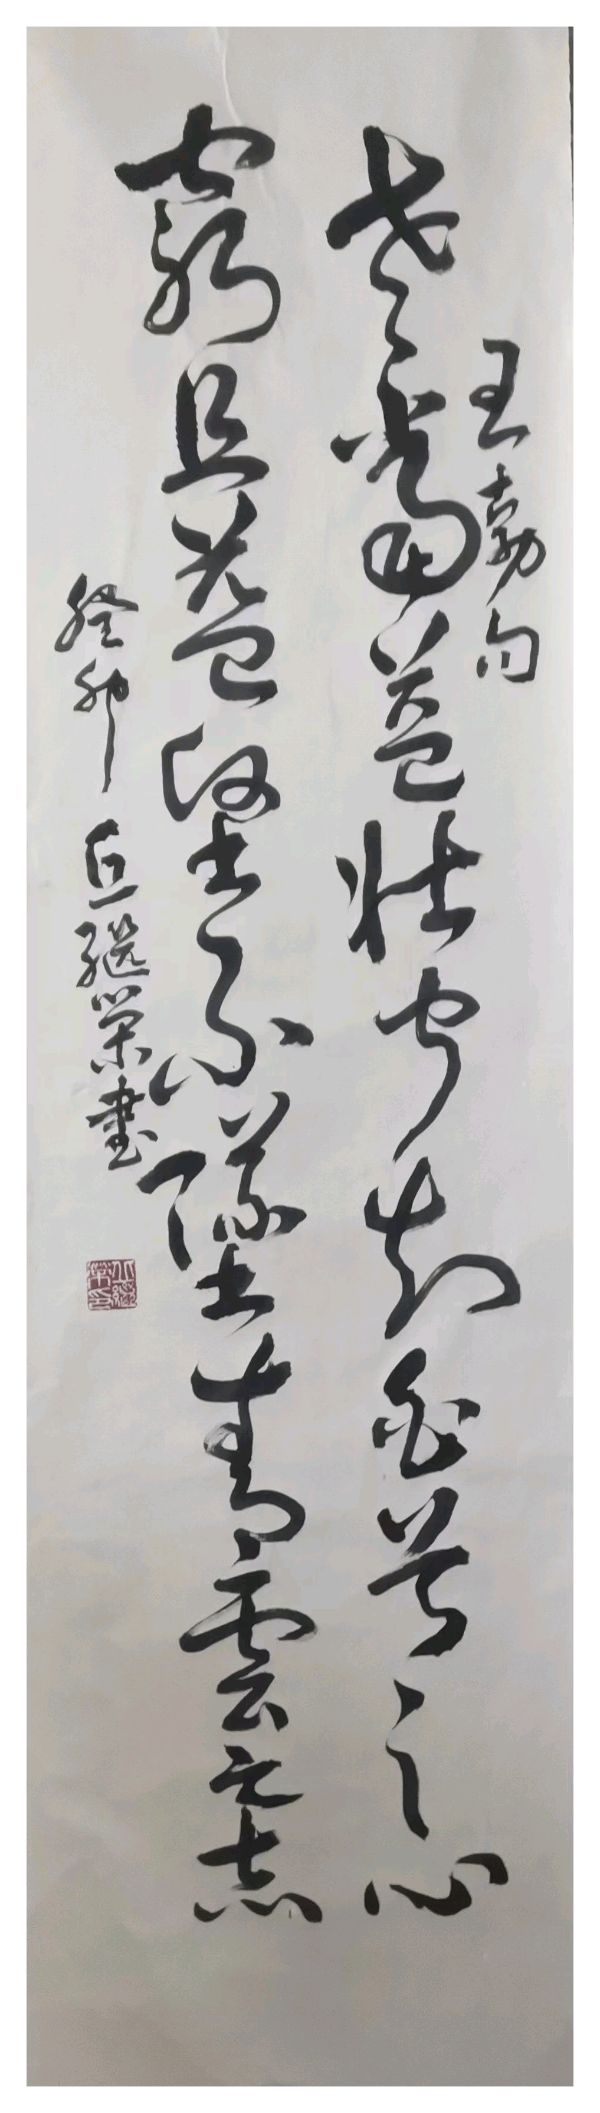 王勃句
老當益壯寧知白首之心
窮且益堅不墜青雲之志
癸卯 丘繼榮書
丘繼榮印